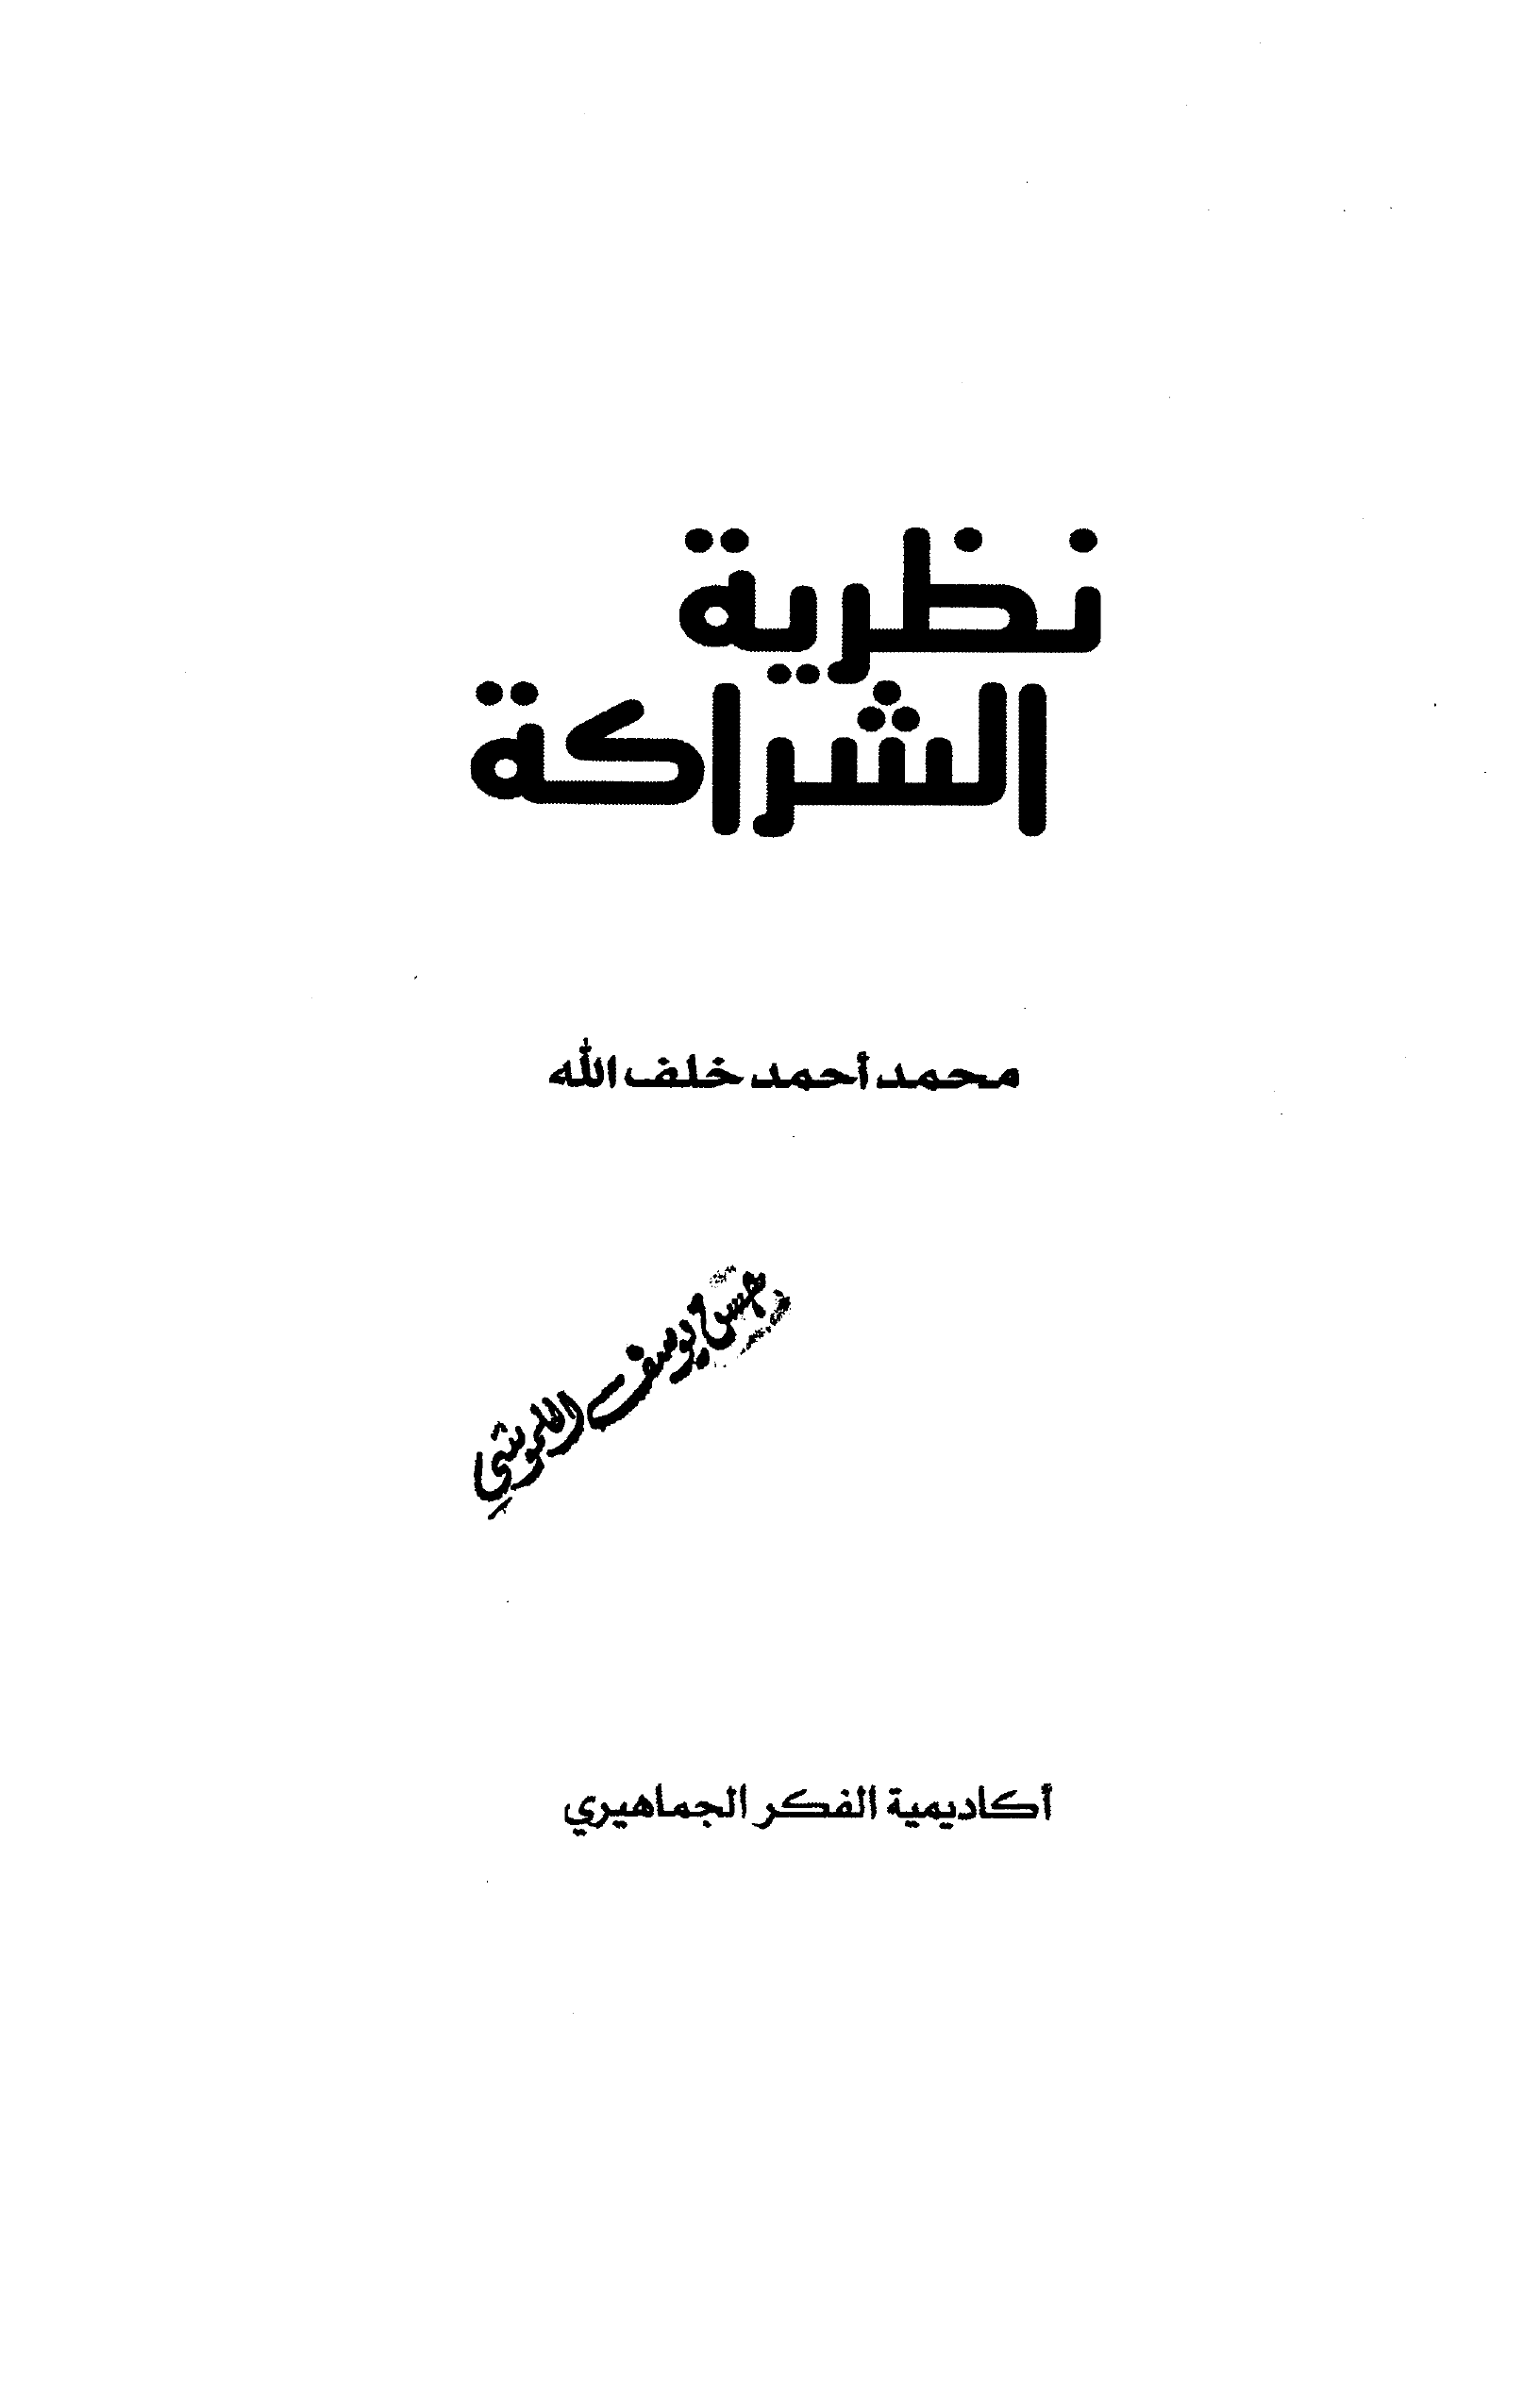 نظرية
الشراكة
محمد أحمد خلف الله
يوسف
أكاديمية الفكر الجماهيري